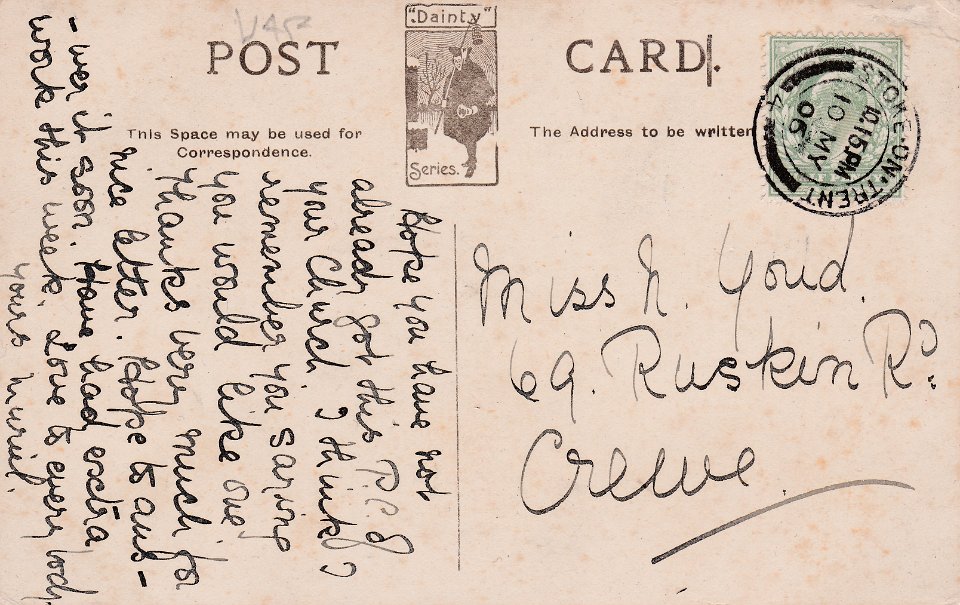 "Dainty"
Series.
POST CARD.
This Space may be used for
Correspondence.
The Address to be written
STOKE·ON·TRENT
10.15 PM
10 MY
06
Hope you have not
already got this P.C. of
your Church I think I
remember you saying
you would like one
Thanks very much for
nice letter. Hope to ans-
-wer it soon. Have had extra
work this week. Love to every body
yours Muriel.
Miss N. Youd.
69. Ruskin Rd.
Crewe